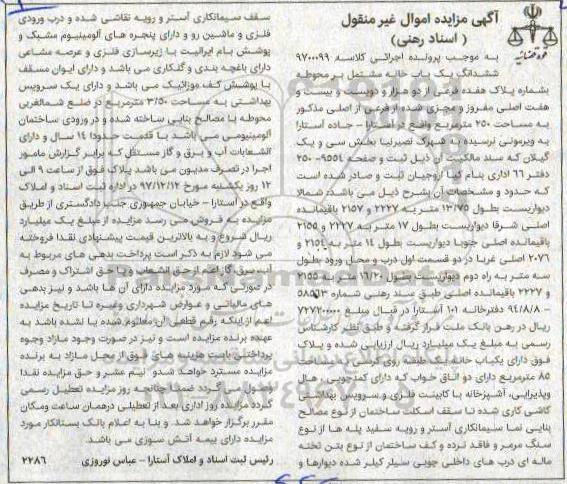 آگهی مزایده اموال غیر منقول
( اسناد رهنی)
به موجب پرونده اجرائی کلاسه ۹۷۰۰۰۹۹
ششدانگ یک باب خانه مشتمل بر محوطه
بشماره پلاک هفده فرعی از دو هزار و دویست و بیست و
هفت اصلی مفروز و مجزی شده از فرعی از اصلی مذکور
به مساحت ۲۵۰ مترمربع واقع در آستارا – جاده آستارا
به ویرمونی نرسیده به شهرک نصیرنیا بخش سی و یک
گیلان که سند مالکیت آن ذیل ثبت و صفحه ۹۵۵۴- ۲۵۰
دفتر ۶۶ اداری بنام کیا آروجیان ثبت و صادر شده است
که حدود و مشخصات آن بشرح ذیل می باشد: شمالا
دیواریست بطول ۱۳/۷۵ متر به ۲۲۲۷ و ۲۱۵۷ باقیمانده
اصلی شرقا دیواریست بطول ۱۷ متر به ۲۲۲۷ و ۲۱۵۵
باقیمانده اصلی جنوبا دیواریست بطول ۱۴ متر به ۲۱۵۴ و
۲۰۷۶ اصلی غربا در دو قسمت اول درب و محل ورود بطول
سه متر به راه دوم دیواریست بطول ۱۶/۲۰ متر به ۲۱۵۵
و ۲۲۲۷ باقیمانده اصلی طبق سند رهنی شماره
– ۹۴/۸/۸ دفترخانه ۱۰۱ آستارا در قبال مبلغ ۷۲۷۲۰۰۰۰۰
ریال در رهن بانک ملت قرار گرفته و طبق نظر کارشناس
رسمی به مبلغ یک میلیارد ریال ارزیابی شده و پلاک
فوق دارای یکباب خانه یک طبقه روی کرسی با مساحت
۸۵ مترمربع دارای دو اتاق خواب که دارای کمدچوبی، هال
وپذیرایی، آشپزخانه با کابینت فلزی و سرویس بهداشتی
کاشی کاری شده تا سقف اسکلت ساختمان از نوع مصالح
بنایی نما سیمانکاری آستر و رویه سفید پله ها از نوع
سنگ مرمر و فاقد نرده و کف ساختمان از نوع بتن تخته
ماله ای درب های داخلی چوبی سیلر کیلر شده دیوارها و
سقف سیمانکاری آستر و رویه نقاشی شده و درب ورودی
فلزی و ماشین رو و دارای پنجره های آلومینیوم مشبک و
پوشش بام ایرانیت با زیرسازی فلزی و عرصه مشاعی
دارای باغچه بندی و گلکاری می باشد و دارای ایوان مسقف
با پوشش کف موزائیک می باشد و دارای یک سرویس
بهداشتی به مساحت ۳/۵۰ مترمربع در ضلع شمالغربی
محوطه با مصالح بنایی ساخته شده و در ورودی ساختمان
آلومینیومی می باشد با قدمت حدودا ۱۴ سال و دارای
انشعابات آب و برق و گاز مستقل که برابر گزارش مامور
اجرا در تصرف مدیون می باشد پلاک فوق از ساعت ۹ الی
۱۲ روز یکشنبه مورخ ۹۷/۱۲/۱۲ در اداره ثبت اسناد و املاک
واقع در آستارا – خیابان جمهوری جنب دادگستری از طریق
مزایده به فروش می رسد مزایده از مبلغ یک میلیارد
ریال شروع و به بالاترین قیمت پیشنهادی نقدا فروخته
می شود لازم به ذکر است پرداخت بدهی های مربوط به
آب، برق، گاز اعم از حق انشعاب و یا حق اشتراک و مصرف
در صورتی که مورد مزایده دارای آن ها باشد و نیز بدهی
های مالیاتی و عوارض شهرداری وغیره تا تاریخ مزایده
اعم از اینکه رقم قطعی آن معلوم شده یا نشده باشد به
عهده برنده مزایده است و نیز در صورت وجود مازاد وجوه
پرداختی بابت هزینه های فوق از محل مازاد به برنده
مزایده مسترد خواهد شدو نیم عشر و حق مزایده نقدا
وصول می گردد ضمنا چنانچه روز مزایده تعطیل رسمی
گردد مزایده روز اداری بعد از تعطیلی درهمان ساعت ومکان
مقرر برگزار خواهد شد. و بنا به اعلام بانک بستانکار مورد
مزایده دارای بیمه آتش سوزی می باشد.
رئیس ثبت اسناد و املاک آستارا – عباس نوروزی ۲۲۸۶